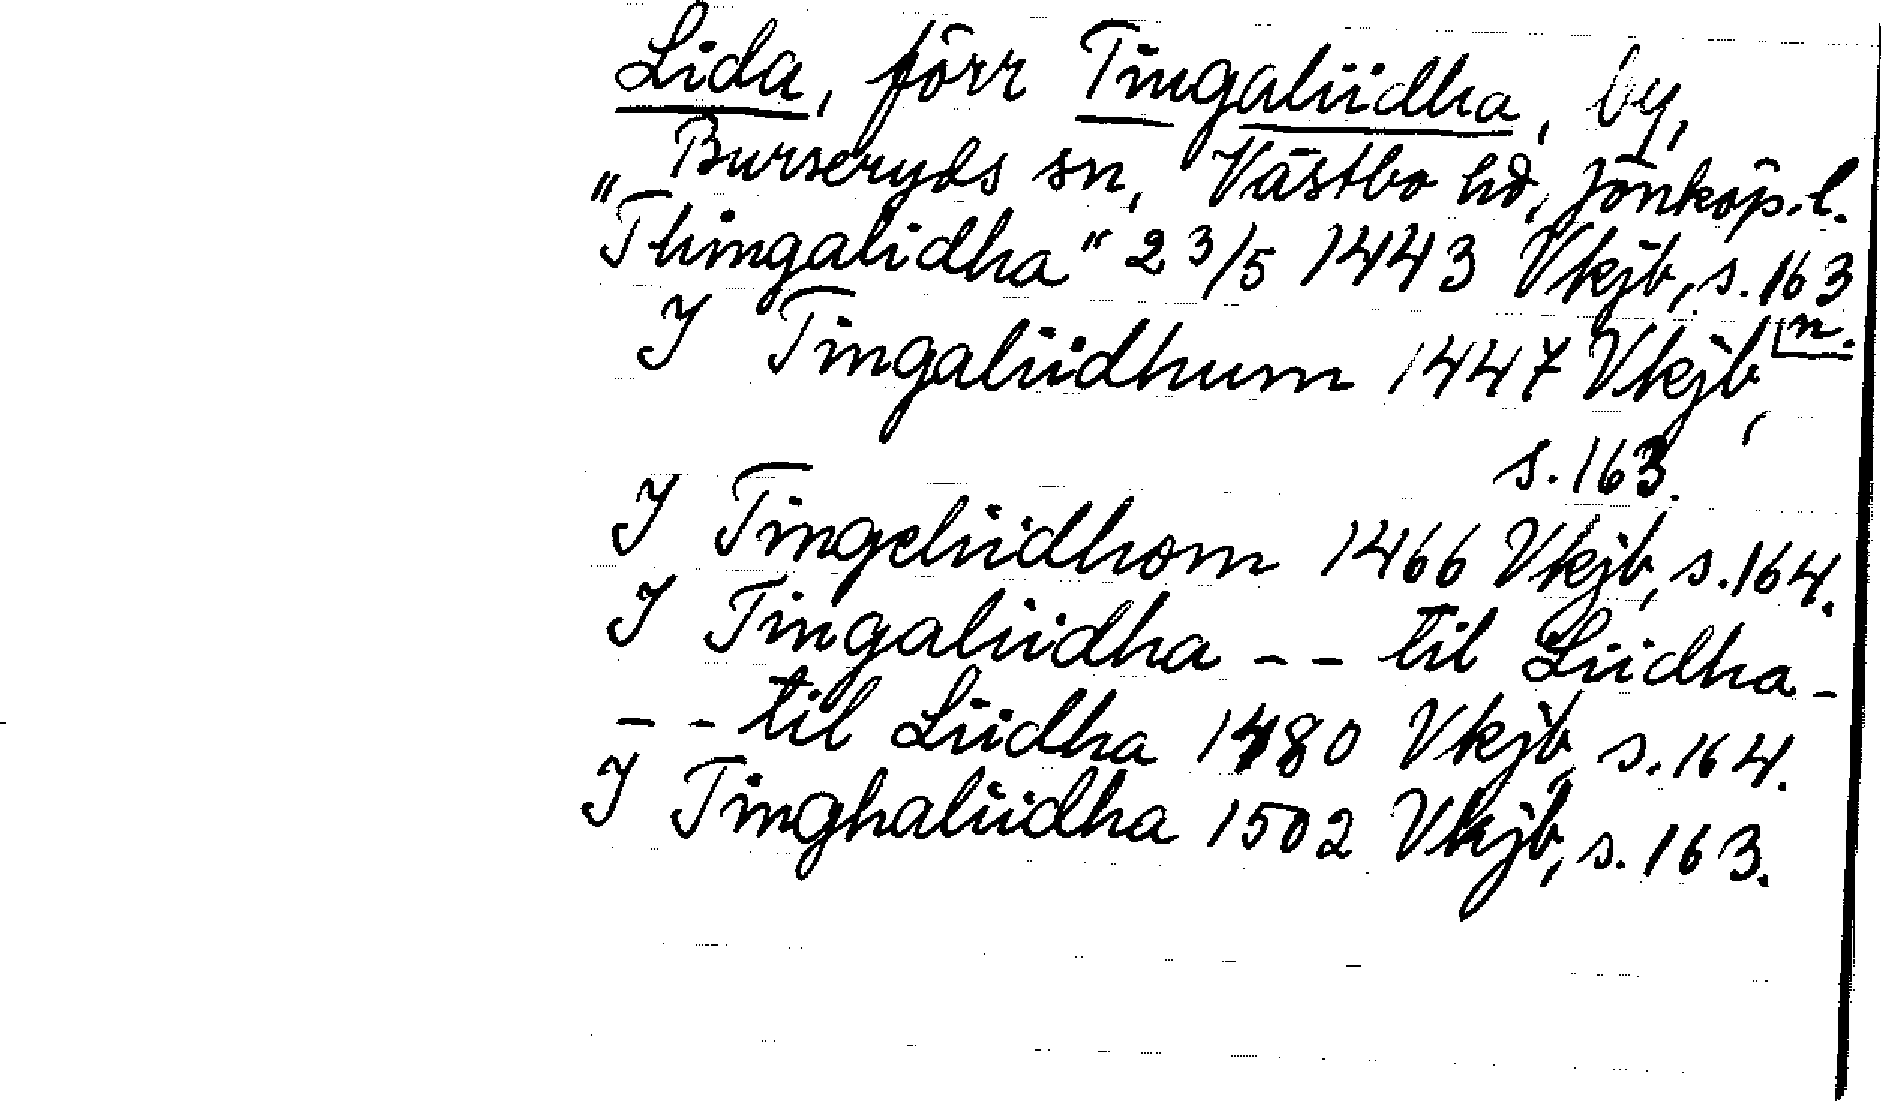 Lida, förr Tingaliidha, by,
Burseryds sn, Västbo hd, Jönköp.l.
"Thingalidha" 23/5 1443 Vkjb, s.163
n.
I Tingaliidhum 1447 Vkjb,
s.163.
I Tingeliidhom 1466 Vkjb, s.164.
I Tingaliidha -- til Liidha -
-- til Liidha 1480 Vkjb, s.164.
I Tinghaliidha 1502 Vkjb, s.163.